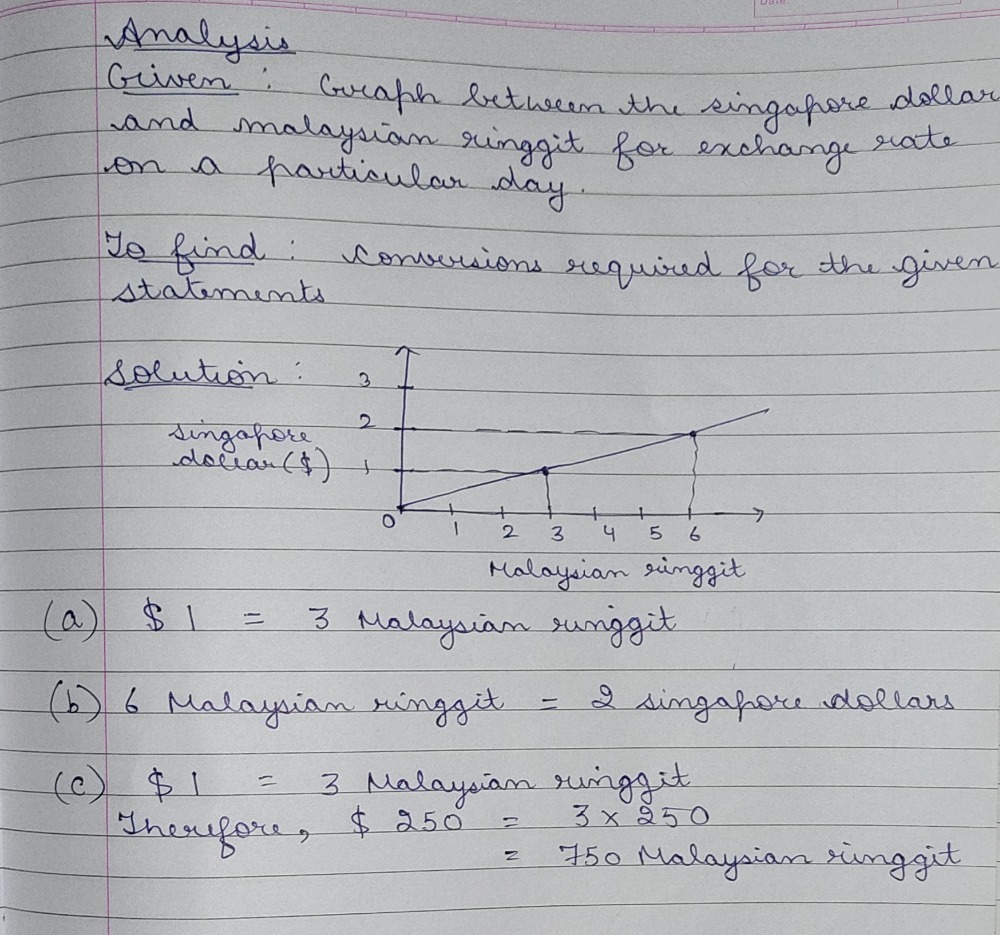 Analysis
Given : Graph between the singapore dollar
and malaysian ringgit for exchange rate
on a particular day.
To find : conversions required for the given
statements
Solution :
3
2
singapore
dollar ($)
1
0
1 2 3 4 5 6
Malaysian ringgit
(a) $ 1 = 3 Malaysian ringgit
(b) 6 Malaysian ringgit = 2 singapore dollars
(c) $ 1 = 3 Malaysian ringgit
Therefore, $ 250 = 3 x 250
= 750 Malaysian ringgit